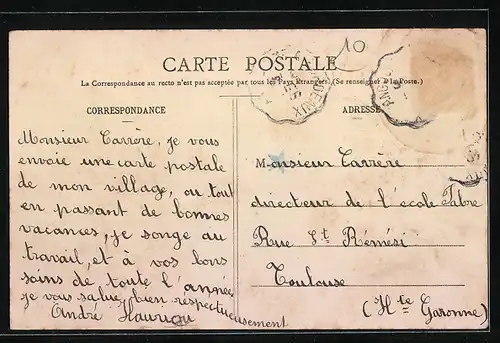 10
CARTE POSTALE
La Correspondance au recto n'est pas acceptée par tous les Pays Étrangers. (Se renseigner à la Poste.)
CORRESPONDANCE
Monsieur Carrère, je vous
envoie une carte postale
de mon village, ou tout
en passant de bonnes
vacances, je songe au
travail, et à vos bons
soins de toute l'année
je vous salue bien respectueusement
André Hauriou
ADRESSE
Monsieur Carrère
directeur de l'école Fabre
Rue St Rémési
Toulouse
(Hte Garonne)